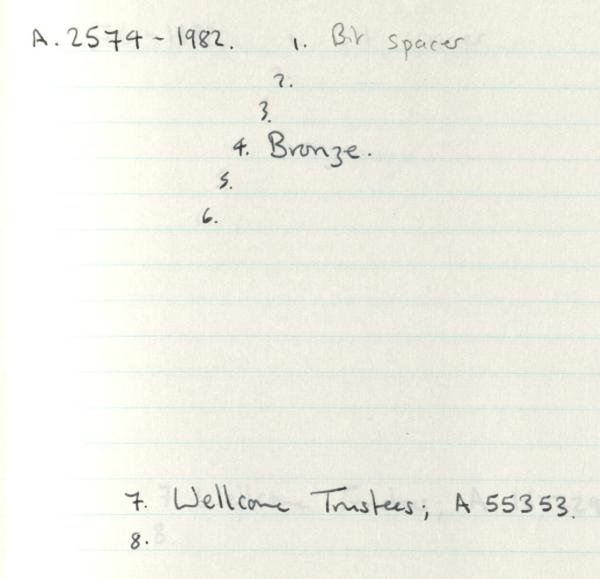 A. 2574 - 1982. 1. Bit spacer
2.
3.
4. Bronze.
5.
6.
7. Wellcome Trustees; A 55353.
8.